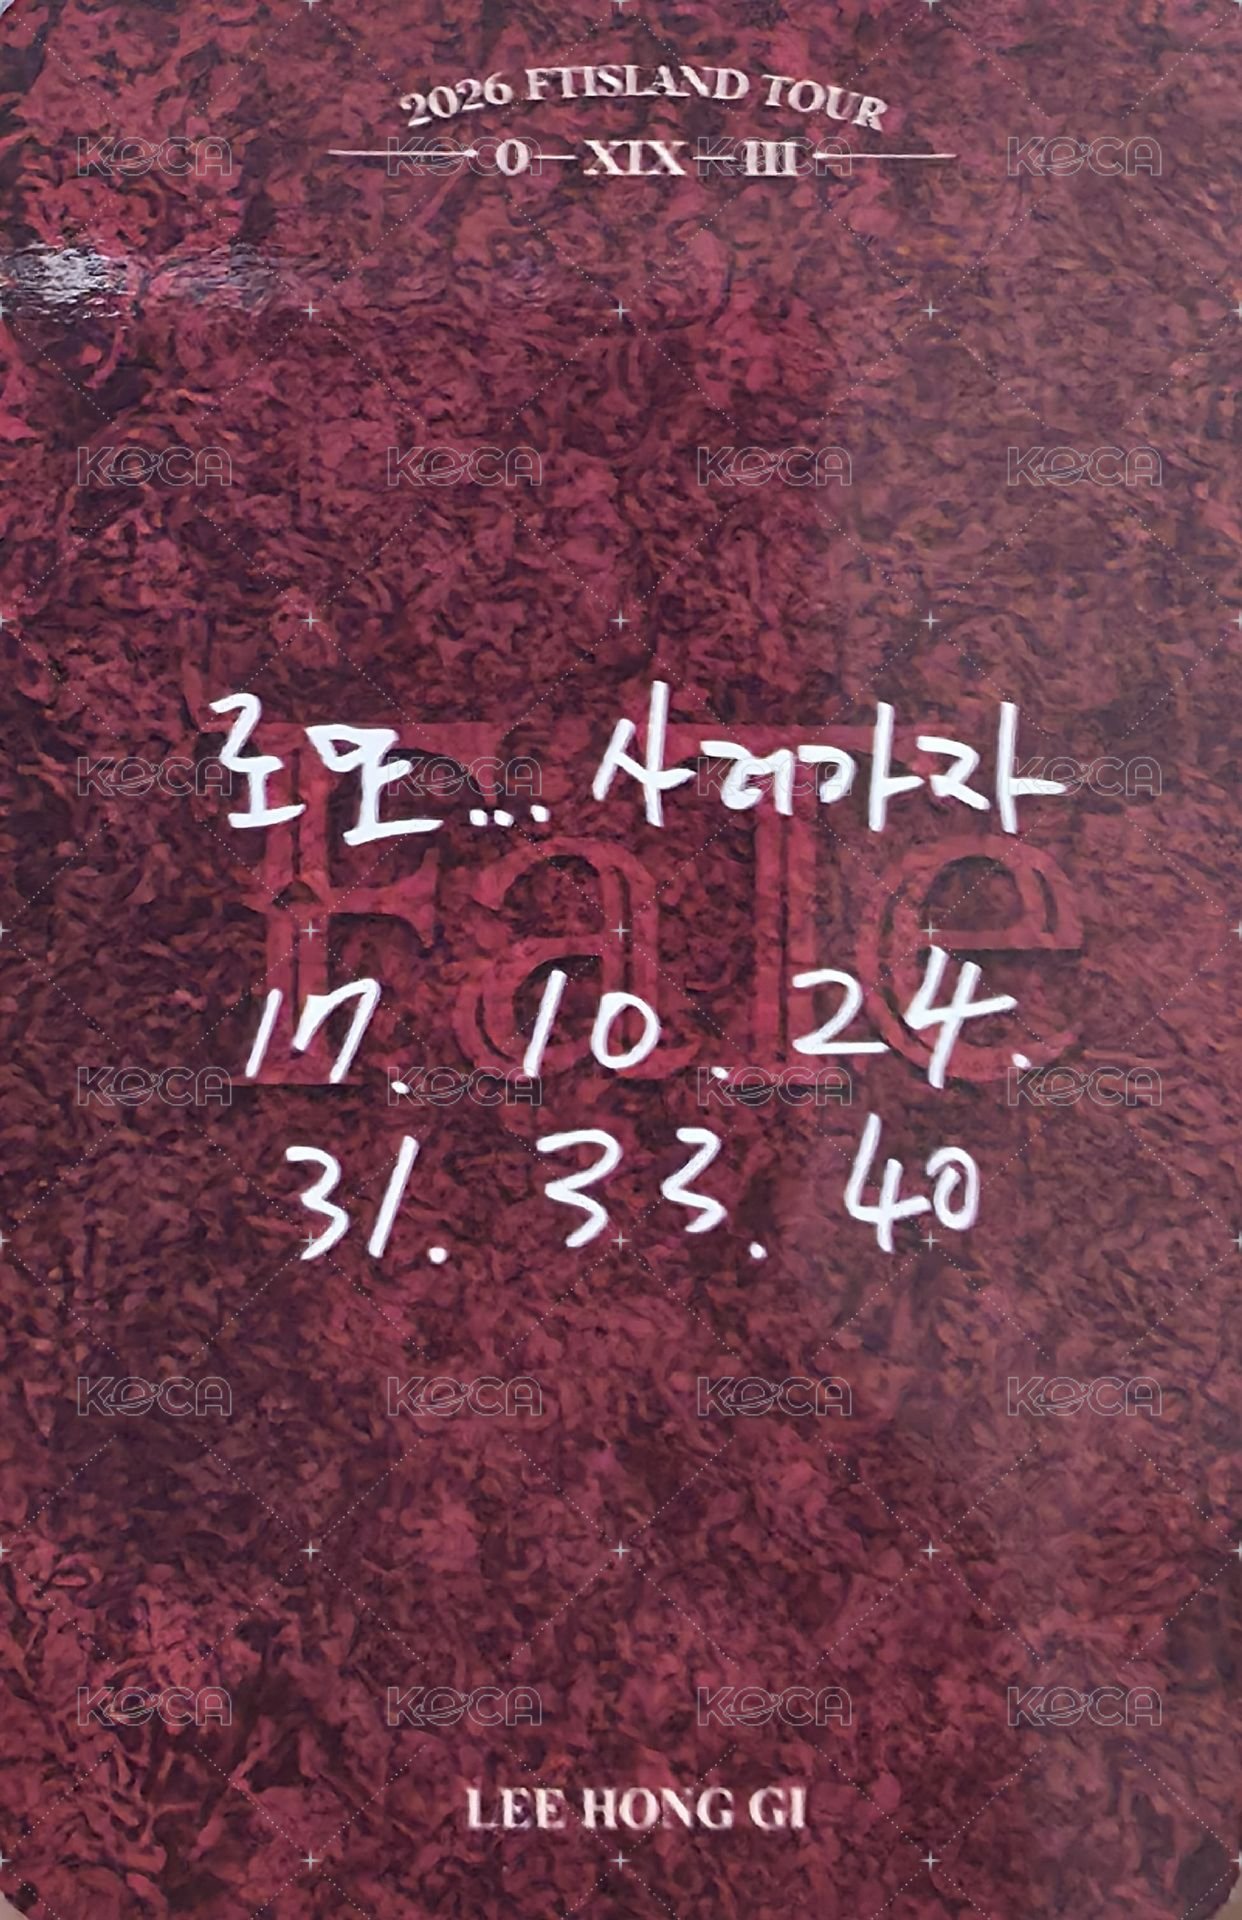 2026 FTISLAND TOUR
O—XIX—III
로또... 사러가자
Fate
17. 10. 24.
31. 33. 40
LEE HONG GI
KOCA